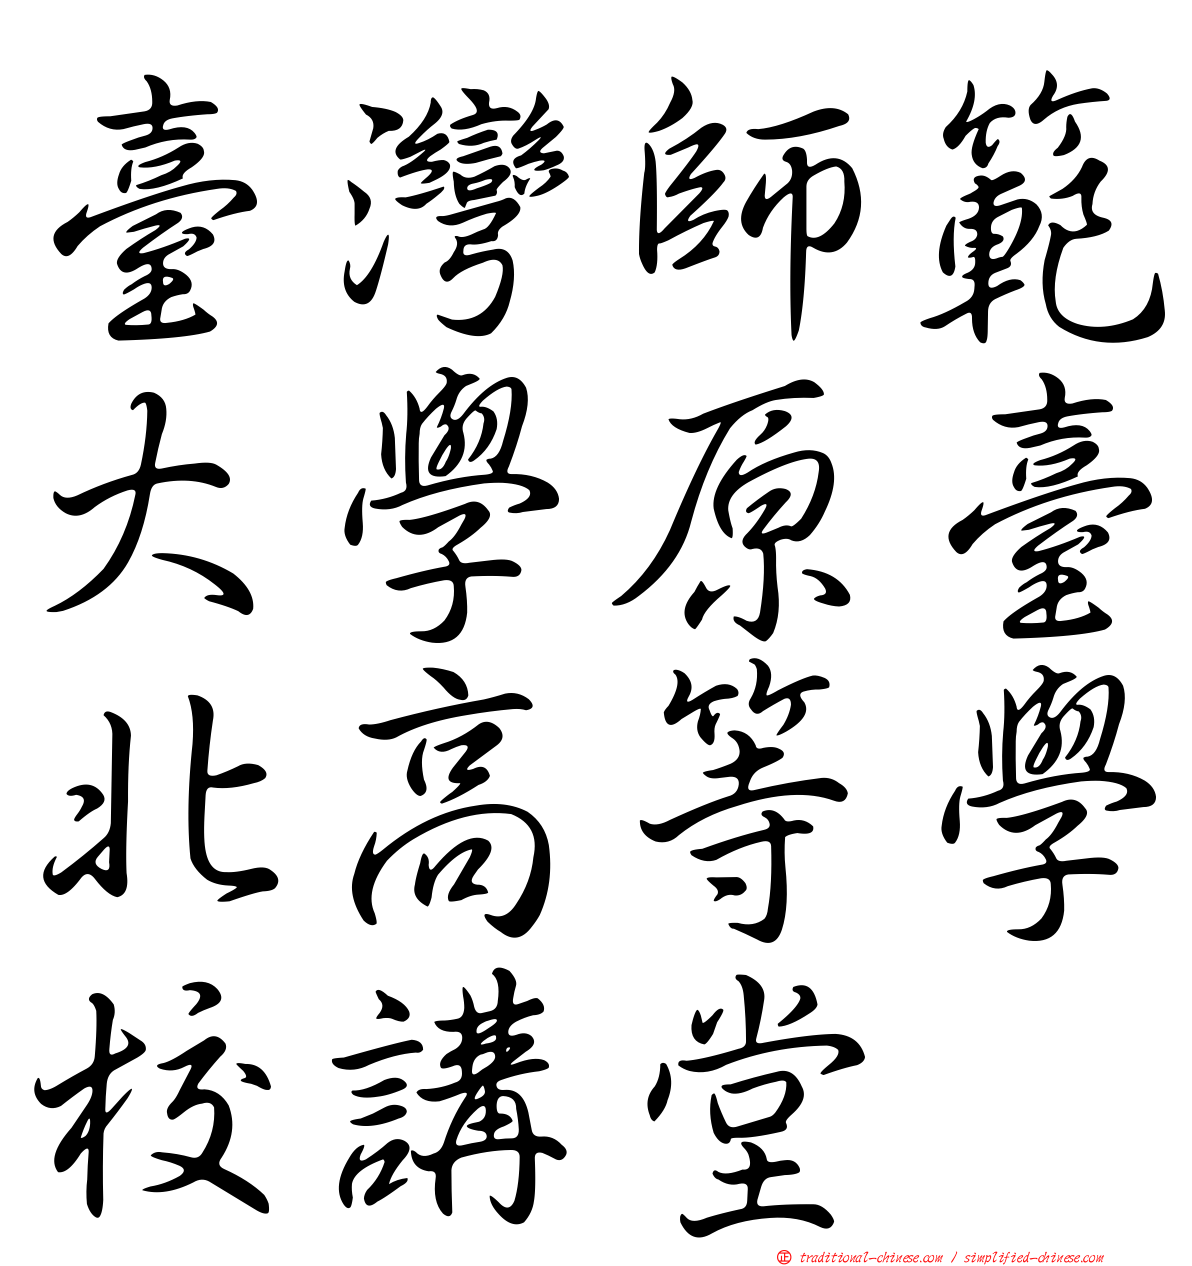 臺灣師範
大學原臺
北高等學
校講堂
正 traditional-chinese.com / simplified-chinese.com